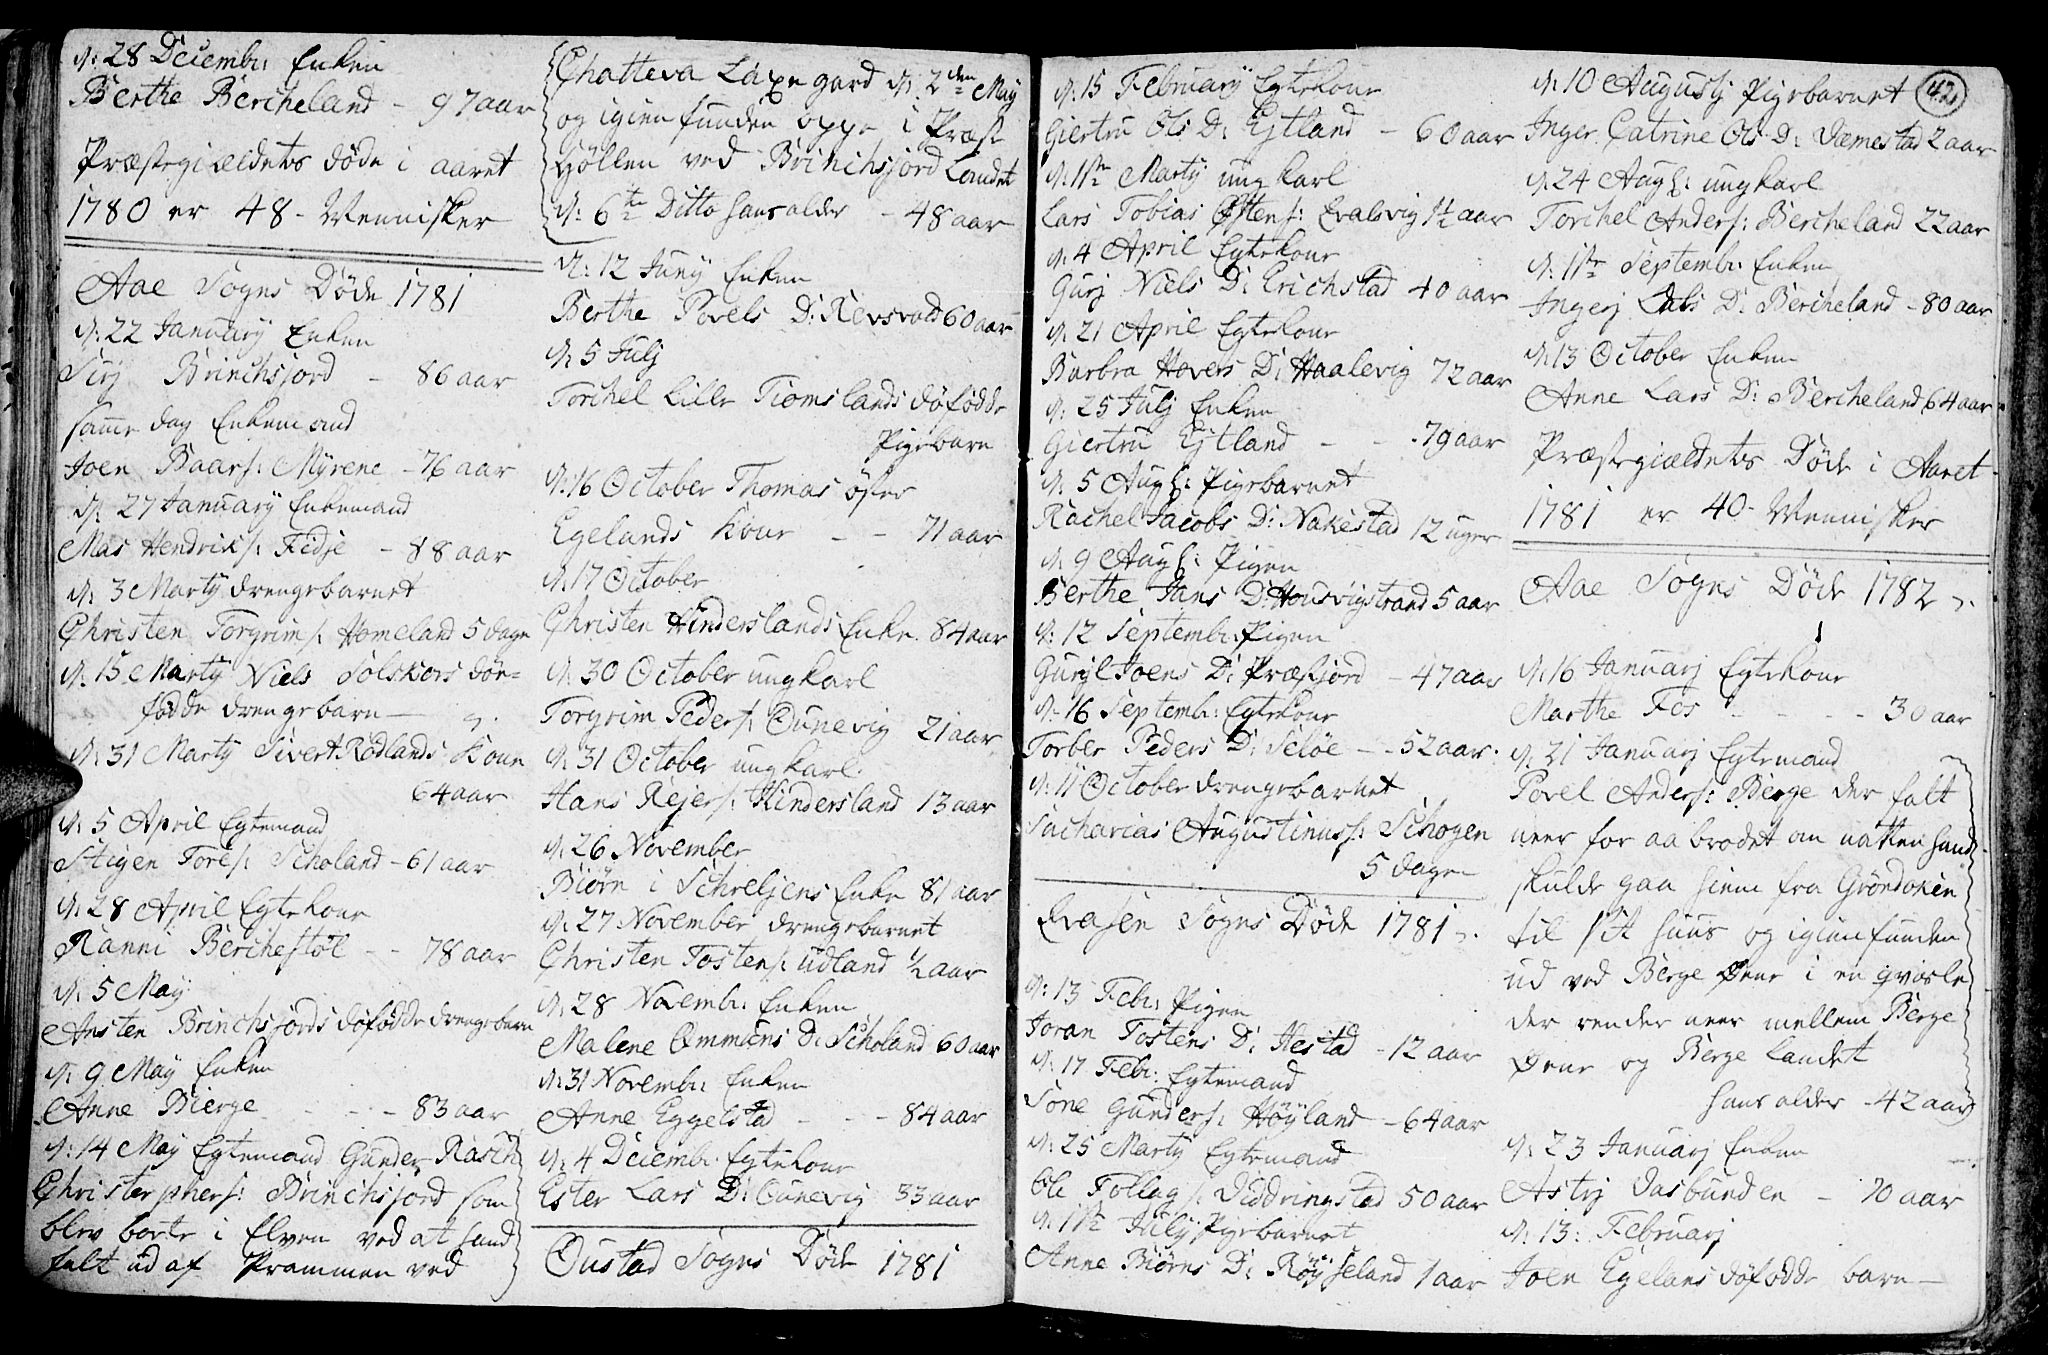 d: 28 Decembr: Enken
Berthe Bercheland - 97 aar
Præstegieldets døde i aaret
1780 er 48 - Mennisker
Aae Sogns Døde 1781
d: 22 January Enken
Sirj Brinchsjord - 86 aar
samme dag Enkemand
Joen Baars: Myrene - 76 aar
d: 27 January Enkemand
Mas Hendriks: Fidje - 88 aar
d: 3 Marty drengebarnet
Christen Torgrims: Homeland 5 dage
d: 15 Marty Niels Solskors død=
fødde drengebarn -
d: 31 Marty Sivert Rødlands Kone
64 aar
d: 5 April Egtemand
Stigen Tores: Scholand - 61 aar
d: 28 April Egtekone
Ranni Berchestøl - - 78 aar
d: 5 May
Ansten Brinchsjords døfødde drengebarn
d: 9 May Enken
Anne Bierge - - - 83 aar
d: 14 May Egtemand Gunder Rasch
Christerphers: Brinchsjord som
blev borte i Elven ved at hand
falt ud af Prammen ved
Chatteva Laxe gard d: 2den May
og igien funden oppe i Præst
Hyllen ved Brinchsjord Landet
d: 6te Ditto hans alder - 48 aar
d: 12 Juny Enken
Berthe Povels D: Revsvold 60 aar
d: 5 Julj
Torchel Lille Tiomslands døfødde
Pigebarn
d: 16 October Thomas øfre
Egelands Kone - - 71 aar
d: 17 October
Christen Hinderslands Enke. 84 aar
d: 30 October ungkarl
Torgrim Peders: Ounevig 21 aar
d: 31 October ungkarl.
Hans Rejers: Hindersland 13 aar
d: 26 November
Biørn i Schreljens Enke 81 aar
d: 27 November drengebarnet
Christen Tostens: Udland ½ aar
d: 28 Novembr: Enken
Malene Ommuns D: Scholand 60 aar
d: 31 Novembr: Enken
Anne Eggelstad - - - 84 aar
d: 4 Decembr. Egtekone
Ester Lars D: Ounevig 33 aar
Oustad Sogns Døde 1781
d: 15 February Egtekone
Giertru Ols D: Ejtland - 60 aar
d: 11te Marty ungkarl
Lars Tobias Østens: Evalsvig 1½ aar
d: 4 April Egtekone
Gurj Niels D: Erichstad 40 aar
d: 21 April Egtekone
Barbra Hovers D: Haalevig 72 aar
d: 25 Julj Enken
Giertru Ejtland - - 79 aar
d: 5 Aug: Pigebarnet
Rachel Jacobs D: Nakestad 12 uger
d: 9 Aug: Pigen
Berthe Jans D: Housvigstrand 5 aar
d: 12 Septembr: Pigen
Guril Joens D: Præstjord - 47 aar
d: 16 Septembr: Egtekone
Torber Peders D: Seløe - - 52 aar.
d: 11 October drengebarnet
Sacharias Augustinus: Schogen
5 dage -
Qvasen Sogns Døde 1781
d: 13 Febr: Pigen
Joran Tostens D: Hestad - 12 aar
d: 17 Febr: Egtemand
Søne Gunders: Høyland - 64 aar
d: 25 Marty Egtemand
Ole Follags: Viddringstad 50 aar
d: 1te July Pigebarnet
Anne Biørns D: Røysseland 1 aar
42
d: 10 Augustj Pigebarnet
Inger Catrine Ols D: Dæmestad 2 aar
d: 24 Aug: ungkarl
Torchel Anders: Bercheland 22 aar
d: 11te Septembr: Enken
Ingerj Lals D: Bercheland - 80 aar
d: 13 October Enken
Anne Lars D: Bercheland 64 aar
Præstegieldets Døde i Aaret
1781 er 40 - Mennisker
Aae Sogns Døde 1782
d: 16 Januarj Egtekone
Marthe Fos - - - - 30 aar
d: 21 Januarj Egtemand
Povel Anders: Berge der falt
neer for aabrodet om natten hand
skulde gaa hiem fra Grøndoken
til sit huus og igien funden
ud ved Berge Øene i en qvisle
der render neer mellem Berge
Øene og Berge Landet
hans alder - 42 aar
d: 23 Januarj Enken
Astrj Dasbunden - 70 aar
d: 13: Februarj
Joen Egelans døfødde barn -